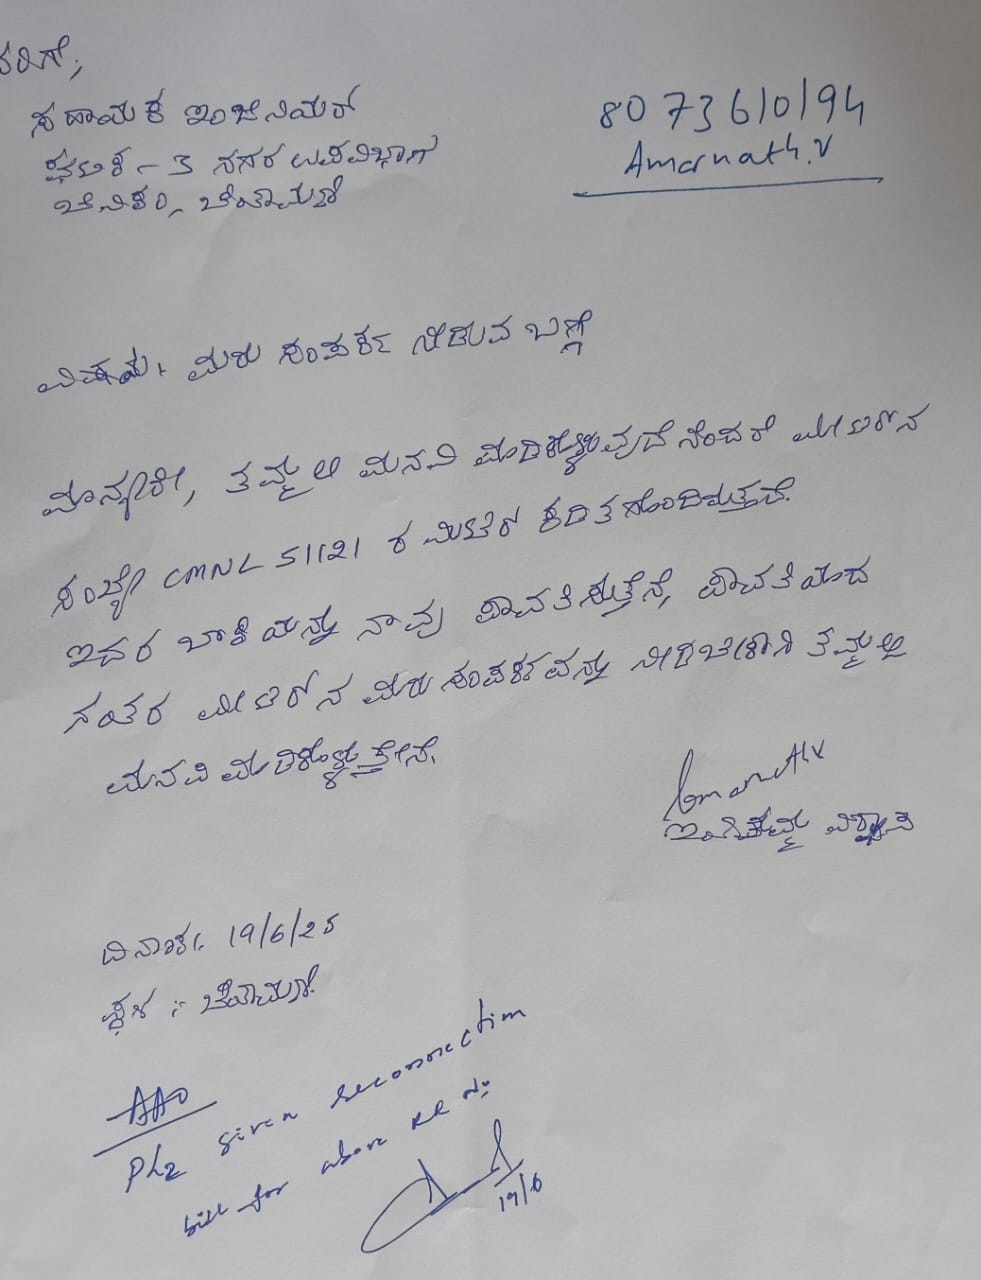 ರಿಗೆ,
ಸಹಾಯಕ ಇಂಜಿನಿಯರ್
8073610194
ಘಟಕ - 3 ನಗರ ಉಪವಿಭಾಗ
Amarnath.V
ಬೆವಿಕಂ, ಚಿಂತಾಮಣಿ
ವಿಷಯ: ಮರು ಸಂಪರ್ಕ ನೀಡುವ ಬಗ್ಗೆ
ಮಾನ್ಯರೇ, ತಮ್ಮಲ್ಲಿ ಮನವಿ ಮಾಡಿಕೊಳ್ಳುವುದೆನೆಂದರೆ ಮೀಟರಿನ
ಸಂಖ್ಯೆ CMNL 51121 ರ ಮೀಟರ್ ಕಡಿತಗೊಂಡಿರುತ್ತದೆ.
ಇದರ ಬಾಕಿಯನ್ನು ನಾವು ಪಾವತಿಸುತ್ತೆನೆ, ಪಾವತಿಯಾದ
ನಂತರ ಮೀಟರ್‌ನ ಮರು ಸಂಪರ್ಕವನ್ನು ನೀಡಬೇಕಾಗಿ ತಮ್ಮಲ್ಲಿ
ಮನವಿ ಮಾಡಿಕೊಳ್ಳುತ್ತೇನೆ.
Amarnath.V
ಇಂತಿ ತಮ್ಮ ವಿಶ್ವಾಸಿ
ದಿನಾಂಕ: 19/6/25
ಸ್ಥಳ : ಚಿಂತಾಮಣಿ
AAO
Plz given reconnection
bill for above RR No:
19/6